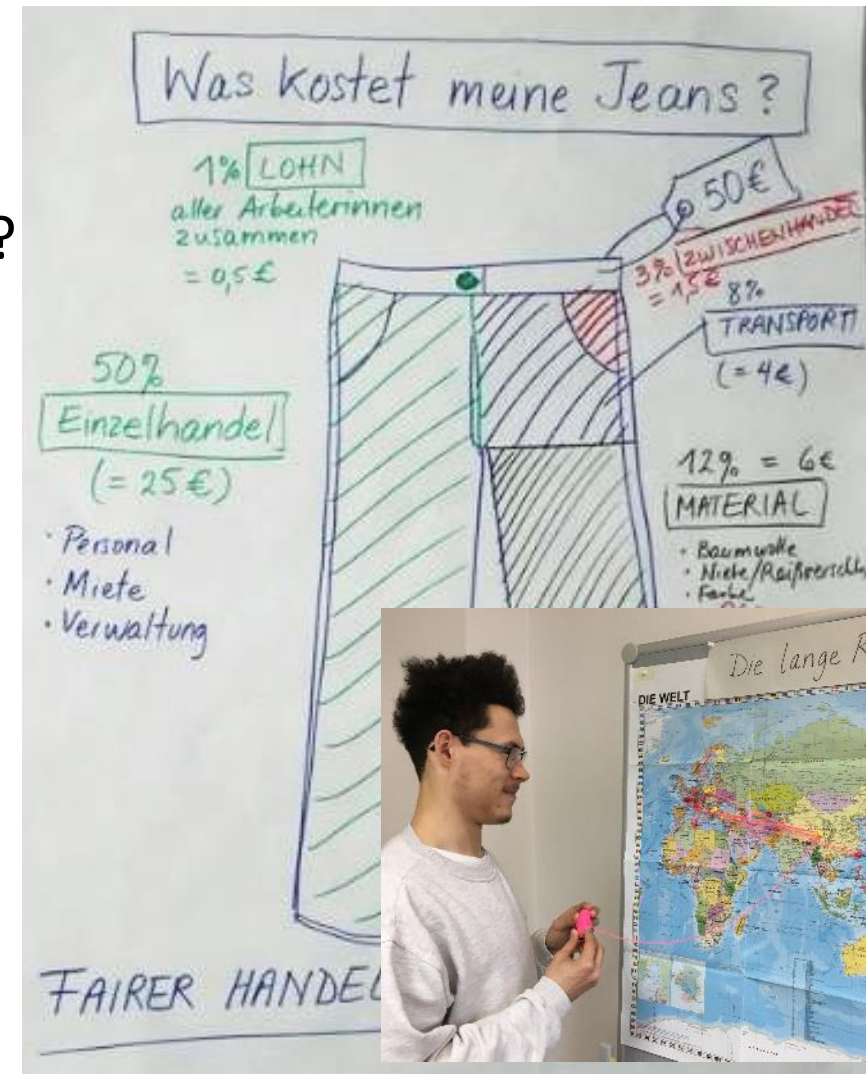 ?
Was kostet meine Jeans?
1% LOHN
aller Arbeiterinnen
zusammen
= 0,5€
50€
3% ZWISCHENHANDEL
= 1,5€
8%
TRANSPORT
(= 4€)
50%
Einzelhandel
(= 25€)
· Personal
· Miete
· Verwaltung
12% = 6€
MATERIAL
· Baumwolle
· Niete/Reißverschlu
· Farbe
Die lange R
DIE WELT
FAIRER HANDEL